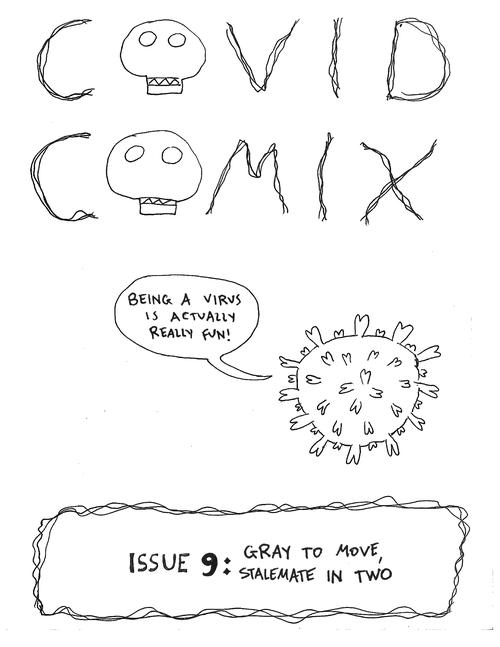 COVID
COMIX
BEING A VIRUS
IS ACTUALLY
REALLY FUN!
ISSUE 9: GRAY TO MOVE,
STALEMATE IN TWO